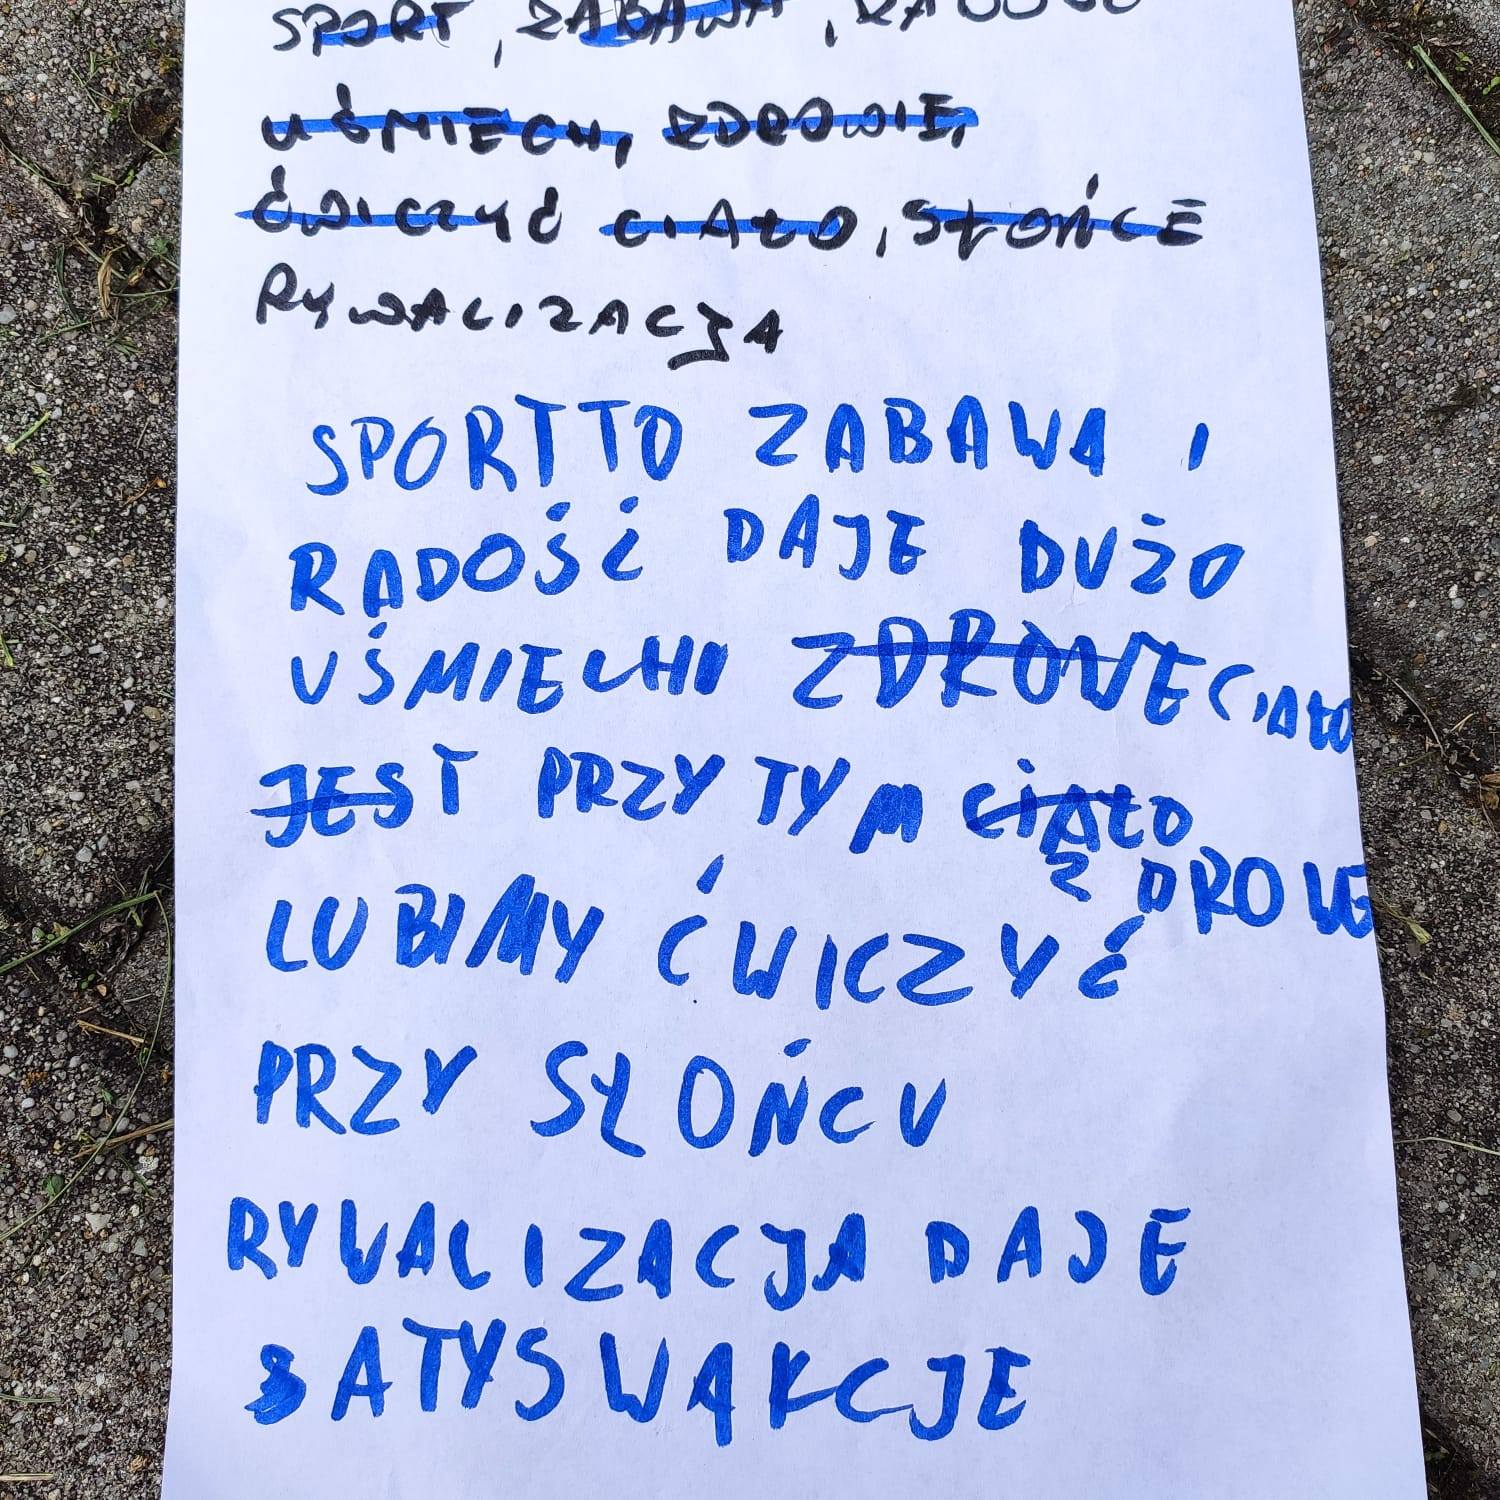 SPORT, ZABAWA,
UŚMIECH, ZDROWIE,
ĆWICZYĆ CIAŁO, SŁOŃCE
RYWALIZACJA
SPORT TO ZABAWA I
RADOŚĆ DAJE DUŻO
UŚMIECHI ZDROWE CIAŁO
JEST PRZY TYM CIAŁO
ZDROWE
LUBIMY ĆWICZYĆ
PRZY SŁOŃCU
RYWALIZACJA DAJE
SATYSWAKCJE